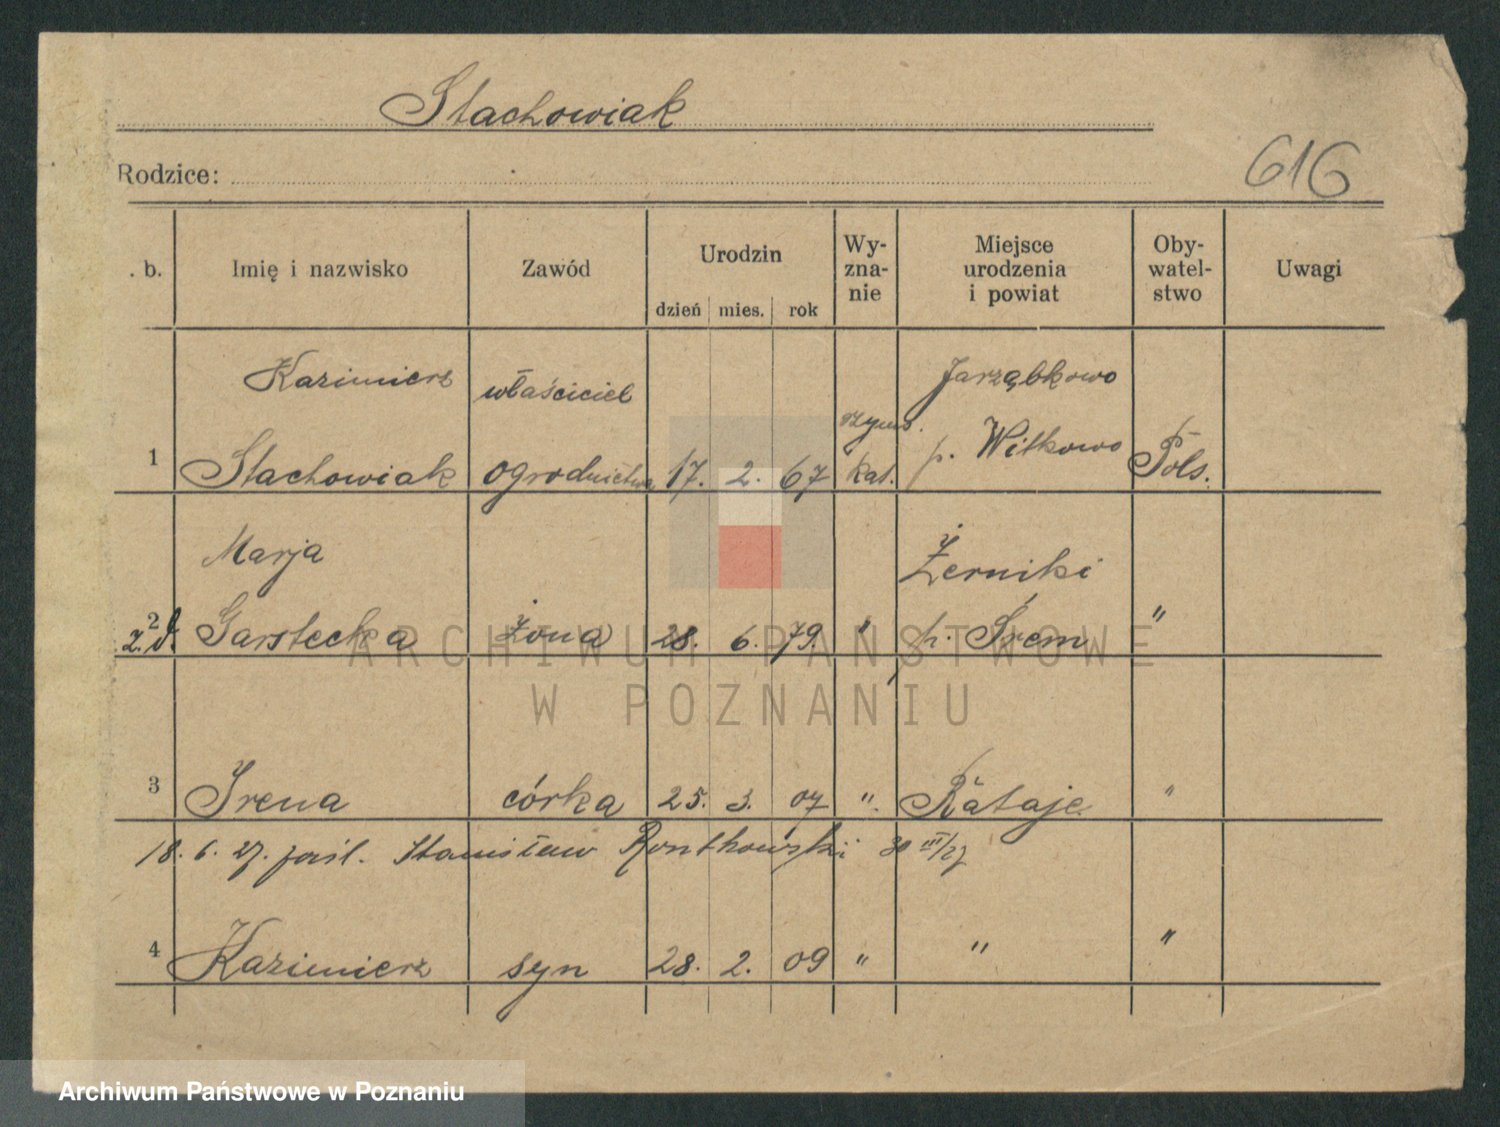 Stachowiak
Rodzice:
616
. b. Imię i nazwisko Zawód Urodzin dzień mies. rok Wy-zna-nie Miejsce urodzenia i powiat Oby-watel-stwo Uwagi
Kazimierz właściciel Jarząbkowo
1 Stachowiak ogrodnictwa 17. 2. 67 rzyms. kat. p. Witkowo Pols.
Marja Żerniki
2 Garstecka żona 28. 6. 79. " p. Śrem "
2. d.
ARCHIWUM PAŃSTWOWE
W POZNANIU
3 Irena córka 25. 3. 07 ". Rataje "
18. 6. 27. Stanisław 30 III/27
4 Kazimierz syn 28. 2. 09 " " "
Archiwum Państwowe w Poznaniu